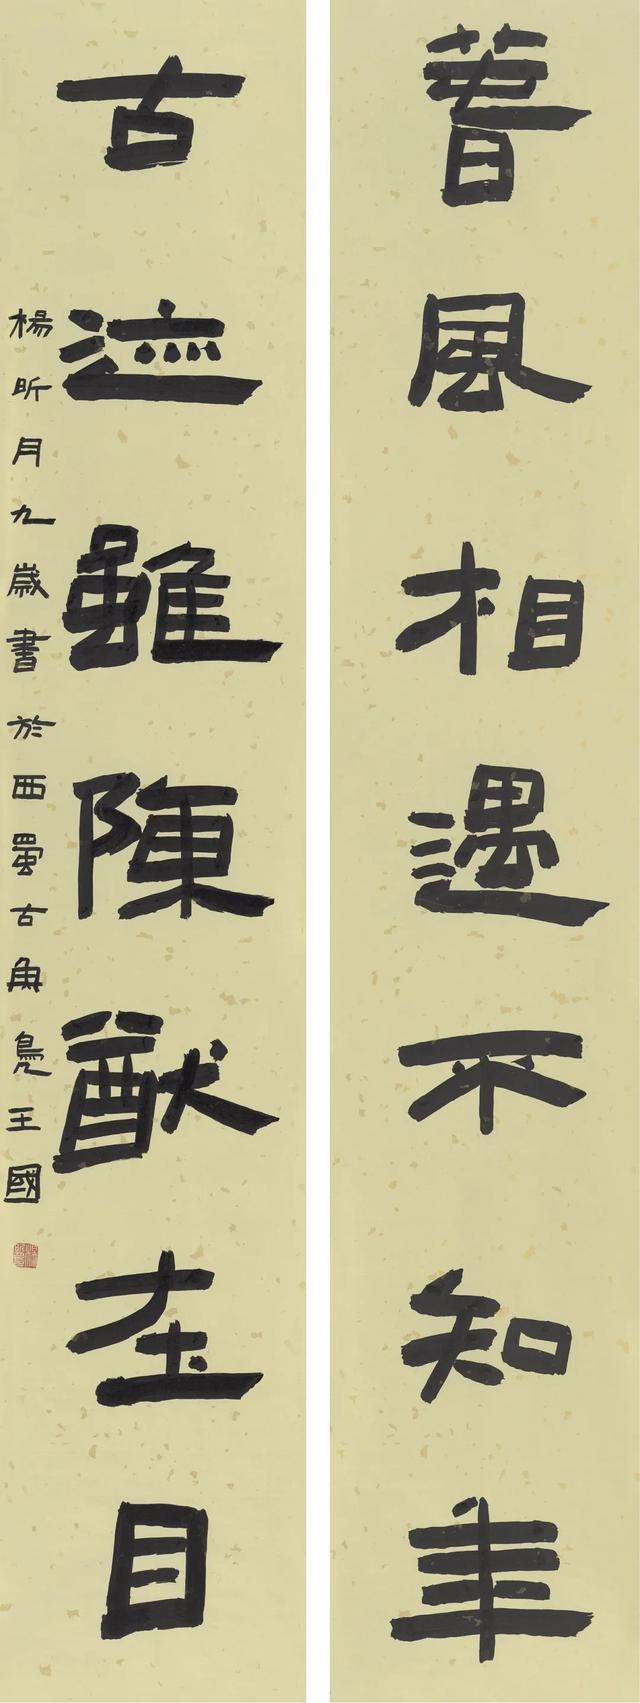 萅風相遇不知年
古迹雖陳猷在目
楊昕月九歲書於西蜀古魚鳧王國